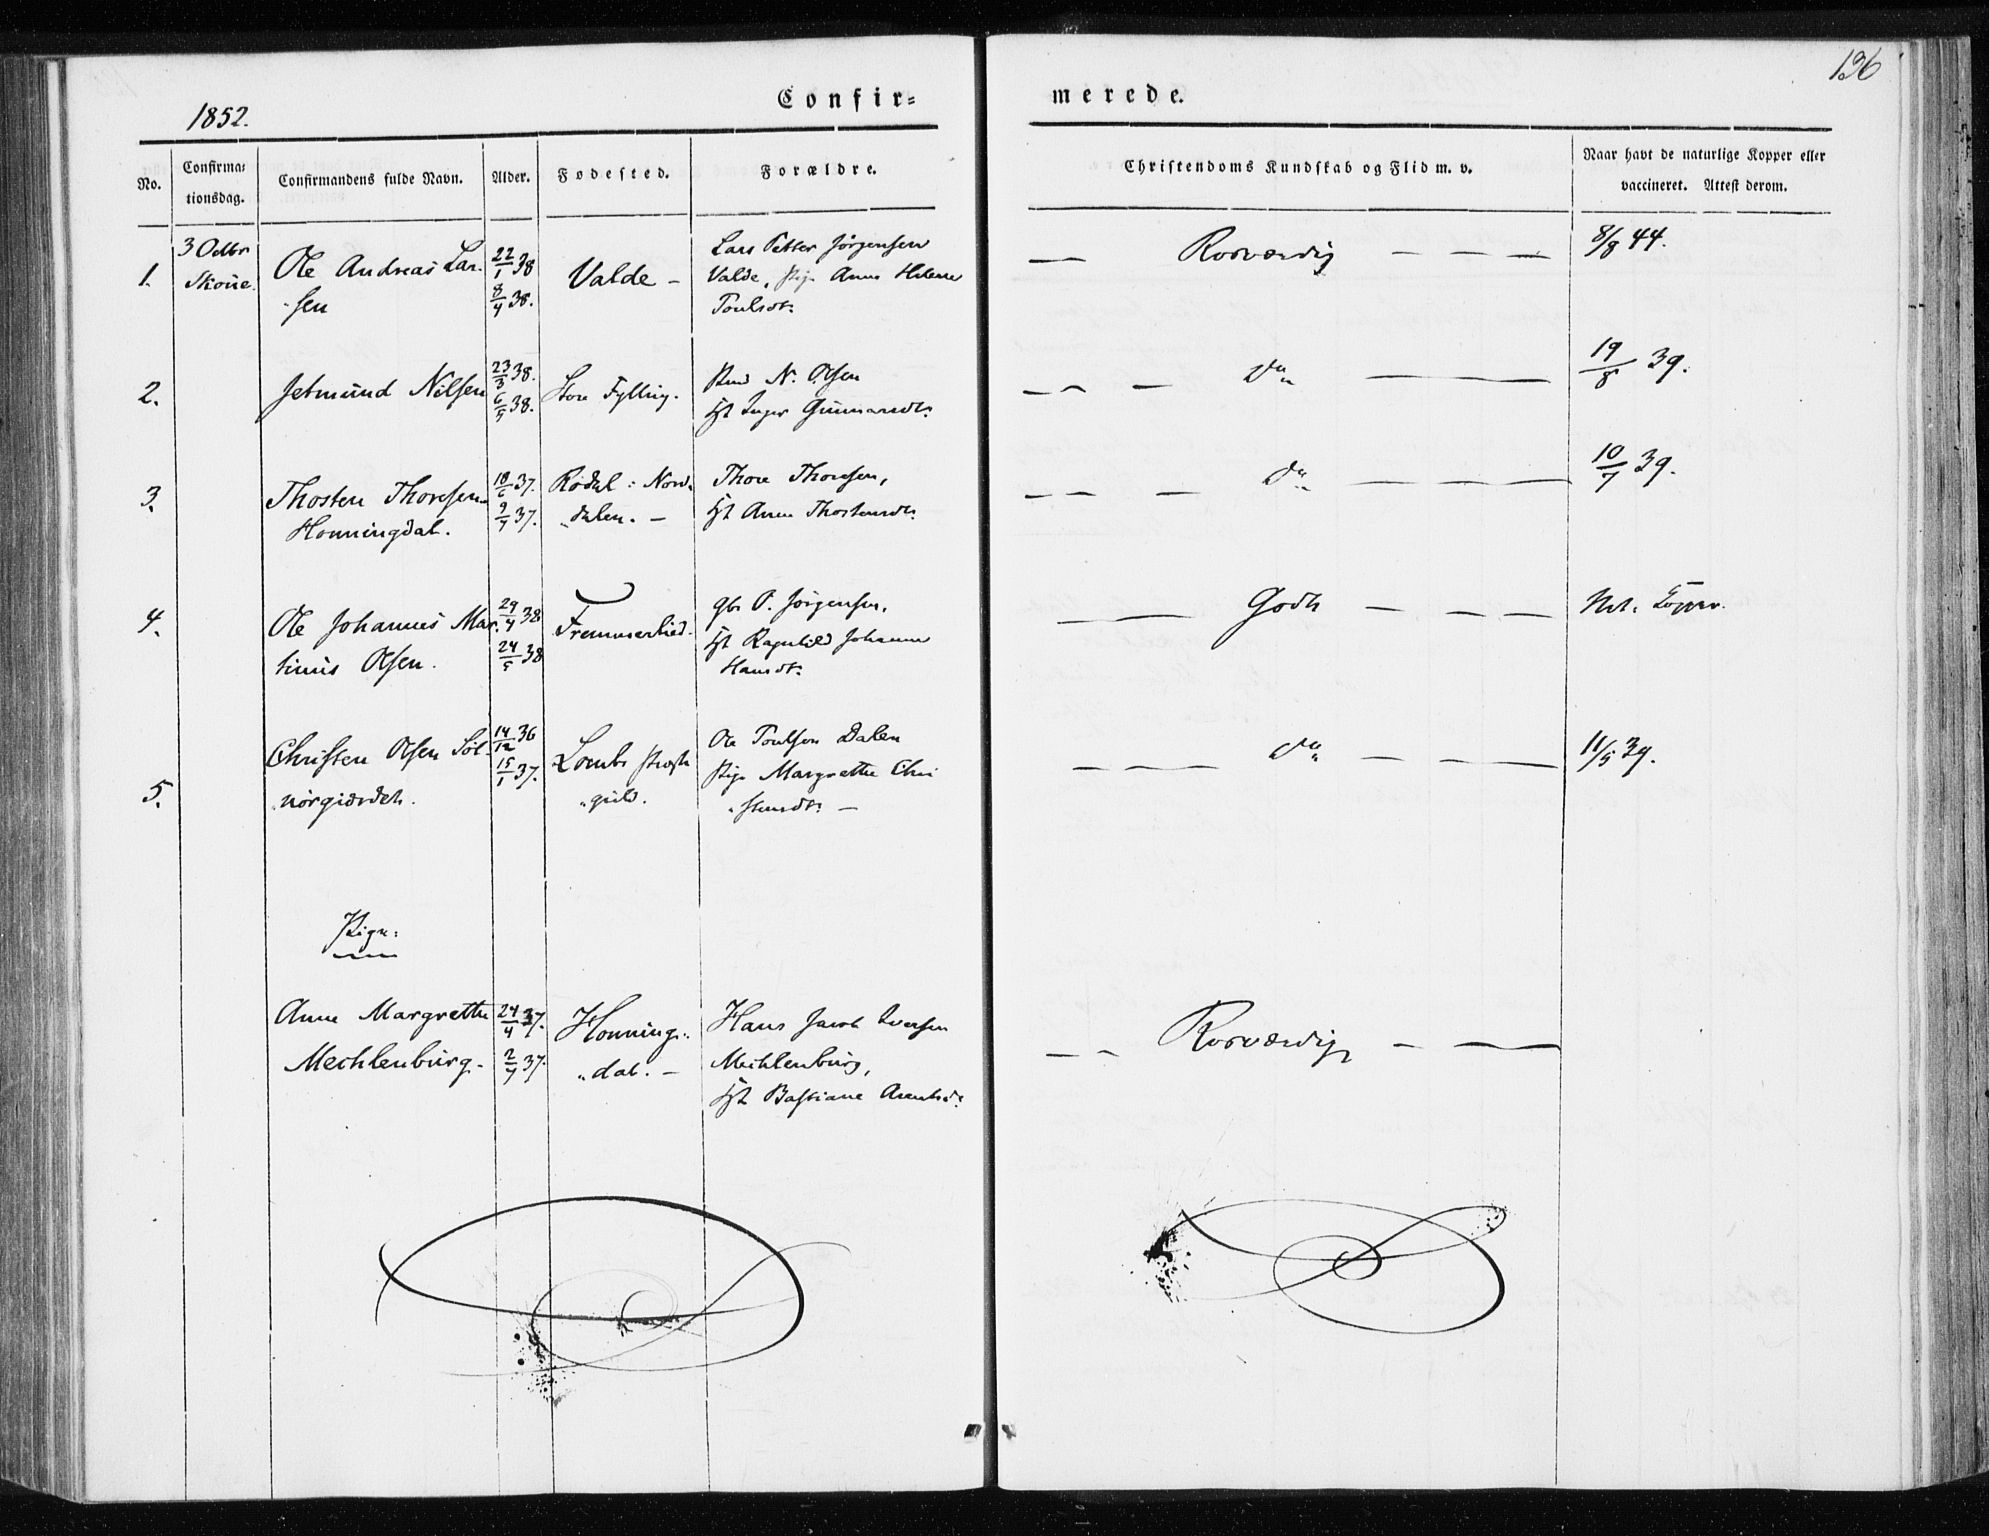 136
1852.
Confir=
merede.
No.
Confirma=
tionsdag.
Confirmandens fulde Navn.
Alder.
Fødested.
Forældre.
Christendoms Kundskab og Flid m. v.
Naar havt de naturlige Kopper eller
vaccineret. Attest derom.
1.
3 Octbr
Skoue.
Ole Andreas Lar-
sen
22/1 38
8/4 38.
Valde –
Lars Petter Jörgensen
Valde, Pige Anne Helene
Poulsdt:
Rosværdig
8/8 44.
2.
Jetmund Nilsen
23/3 38.
6/5 38.
Store Fylling.
N. Olsen
Inger Gunnarsdt:
do
19/8 39.
3.
Thosten Thoresen
Honningdal.
18/6 37.
9/7 37.
Rödal: Nord-
dalen. –
Thore Thoresen,
Anne Thostensdt:
do
10/7 39.
4.
Ole Johannes Mar-
tinus Olsen.
29/4 38
24/5 38
Fremmerlied.
P. Jörgensen,
Ragnhild Johanne
Hansdt:
Godt
Nat. Kopper.
5.
Christen Olsen Söl-
nörgiærdet.
14/12 36
15/1 37.
Lombs Præste
gield.
Ole Poulsen Dalen
Pige Margrethe Chri
stensdt: –
do
11/5 39.
Pigen:
Anne Margrethe
Mechlenburg.
24/4 37.
2/7 37.
Honning-
dal. –
Hans Jacob Iversen
Mechlenburg,
Bastiane Arentsd:
Rosværdig